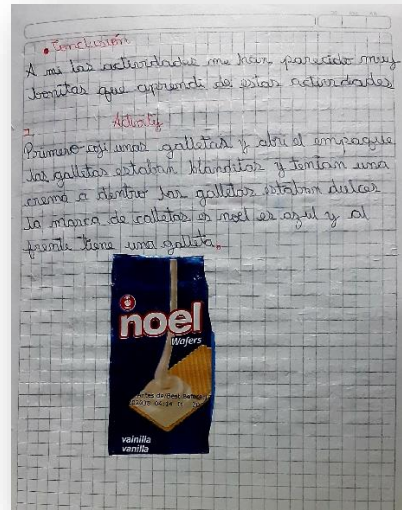 • Conclusión
A mi las actividades me han parecido muy
bonitas que aprendi de estas actividades
1.
Activity
Primero coji unas galletas y abri el empaque
las galletas estaban blanditas y tenian una
crema a dentro las galletas estaban dulces
la marca de galletas es noel es azul y al
frente tiene una galleta.
noel
Wafers
vainilla
vanilla